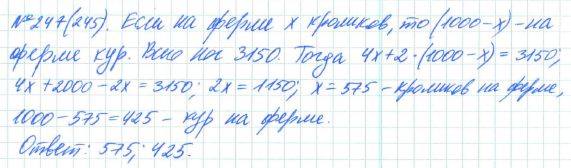 № 247(245). Если на ферме x кроликов, то (1000-x)-на
ферме кур. Всего ног 3150. Тогда 4x+2·(1000-x)=3150;
4x+2000-2x=3150; 2x=1150; x=575 - кроликов на ферме,
1000-575=425 - кур на ферме.
Ответ: 575; 425.